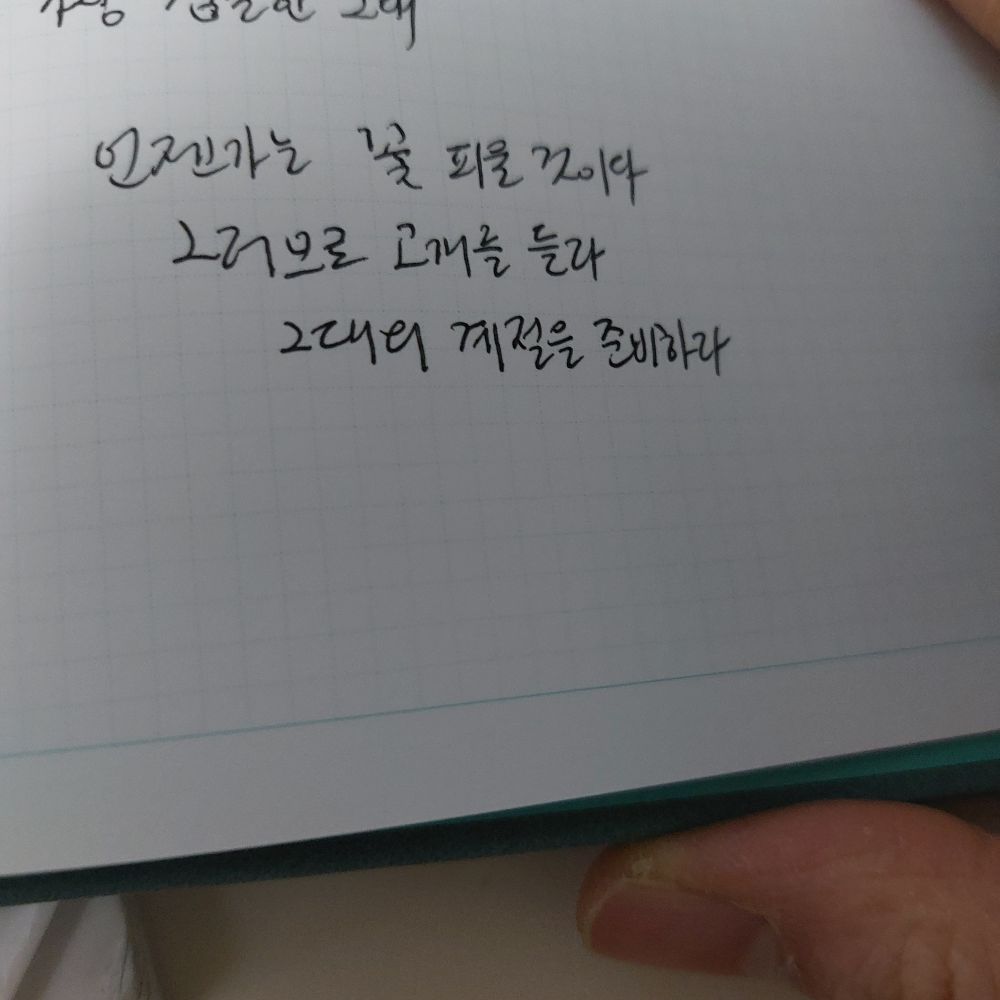 그대
언젠가는 꽃 피울 것이다
그러므로 고개를 들라
그대의 계절을 준비하라